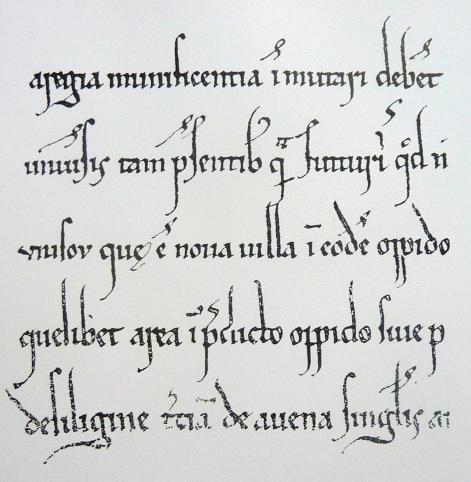 a regia munificentia īmutari debet
uniuſis tam pſentib qā futuri qd n
que ē noua uilla ī eodē oppido
quelibet area ī pdicto oppido ſiue p
de ſiligine tciā de auena ſinglis